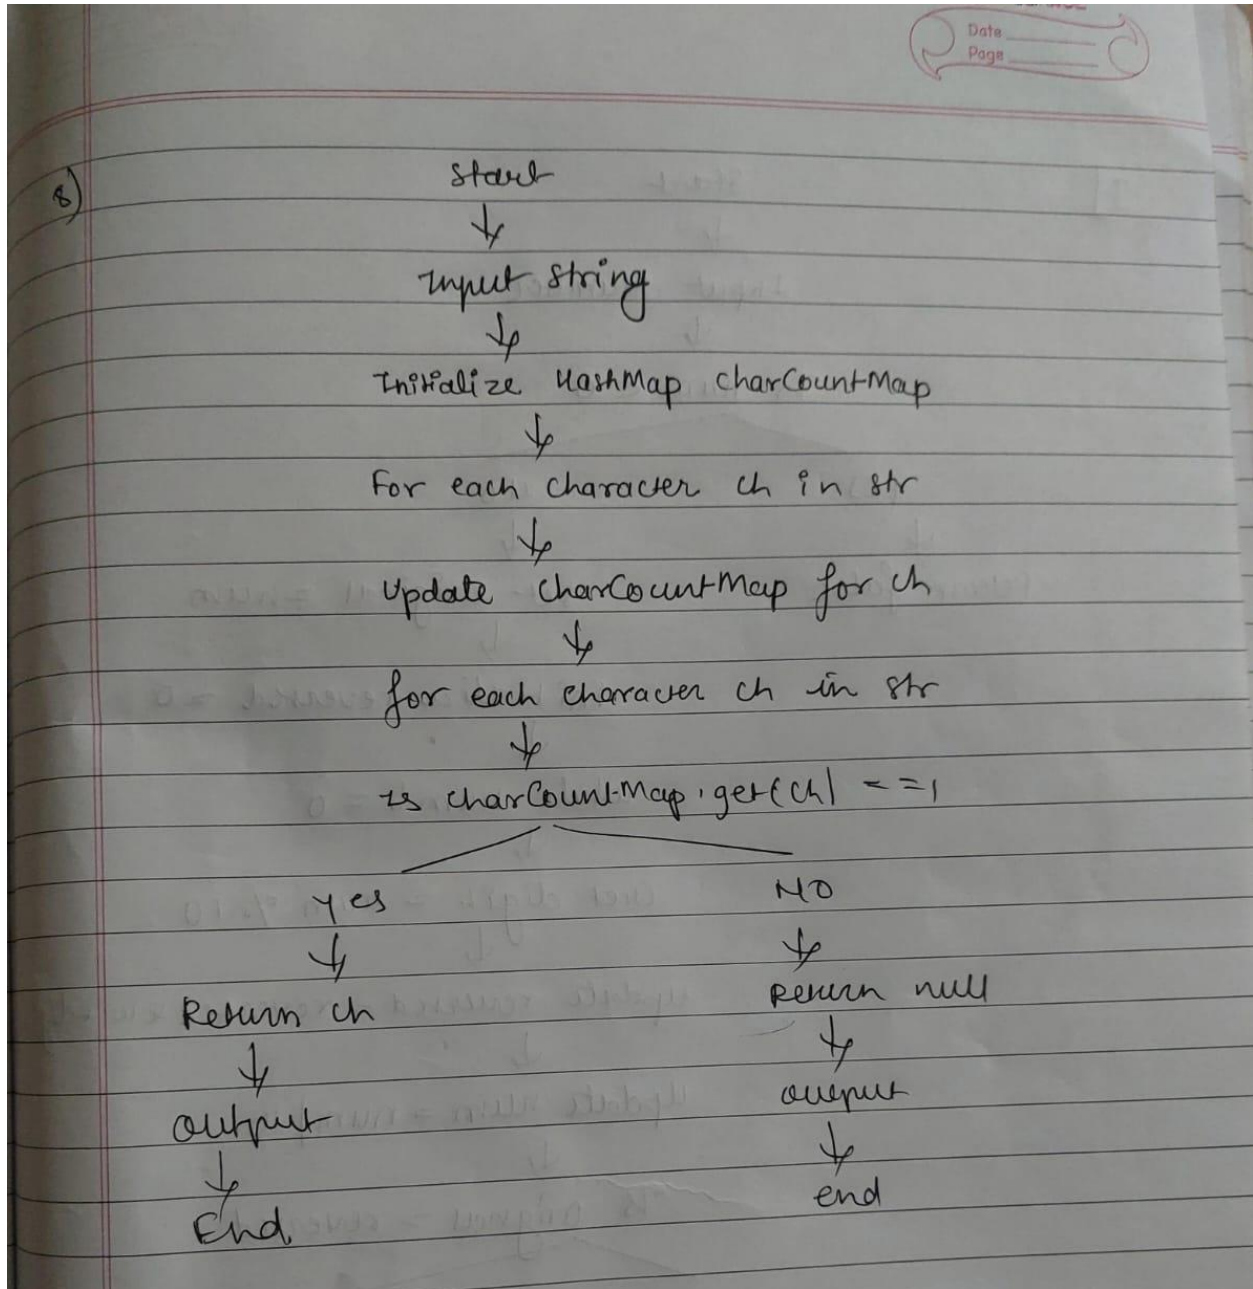 Date
Page
8)
Start
Input String
Initialize HashMap charCountMap
For each character ch in str
Update charCountMap for ch
for each character ch in str
is charCountMap.get(ch) ==1
Yes
NO
Return ch
Return null
output
output
End
end